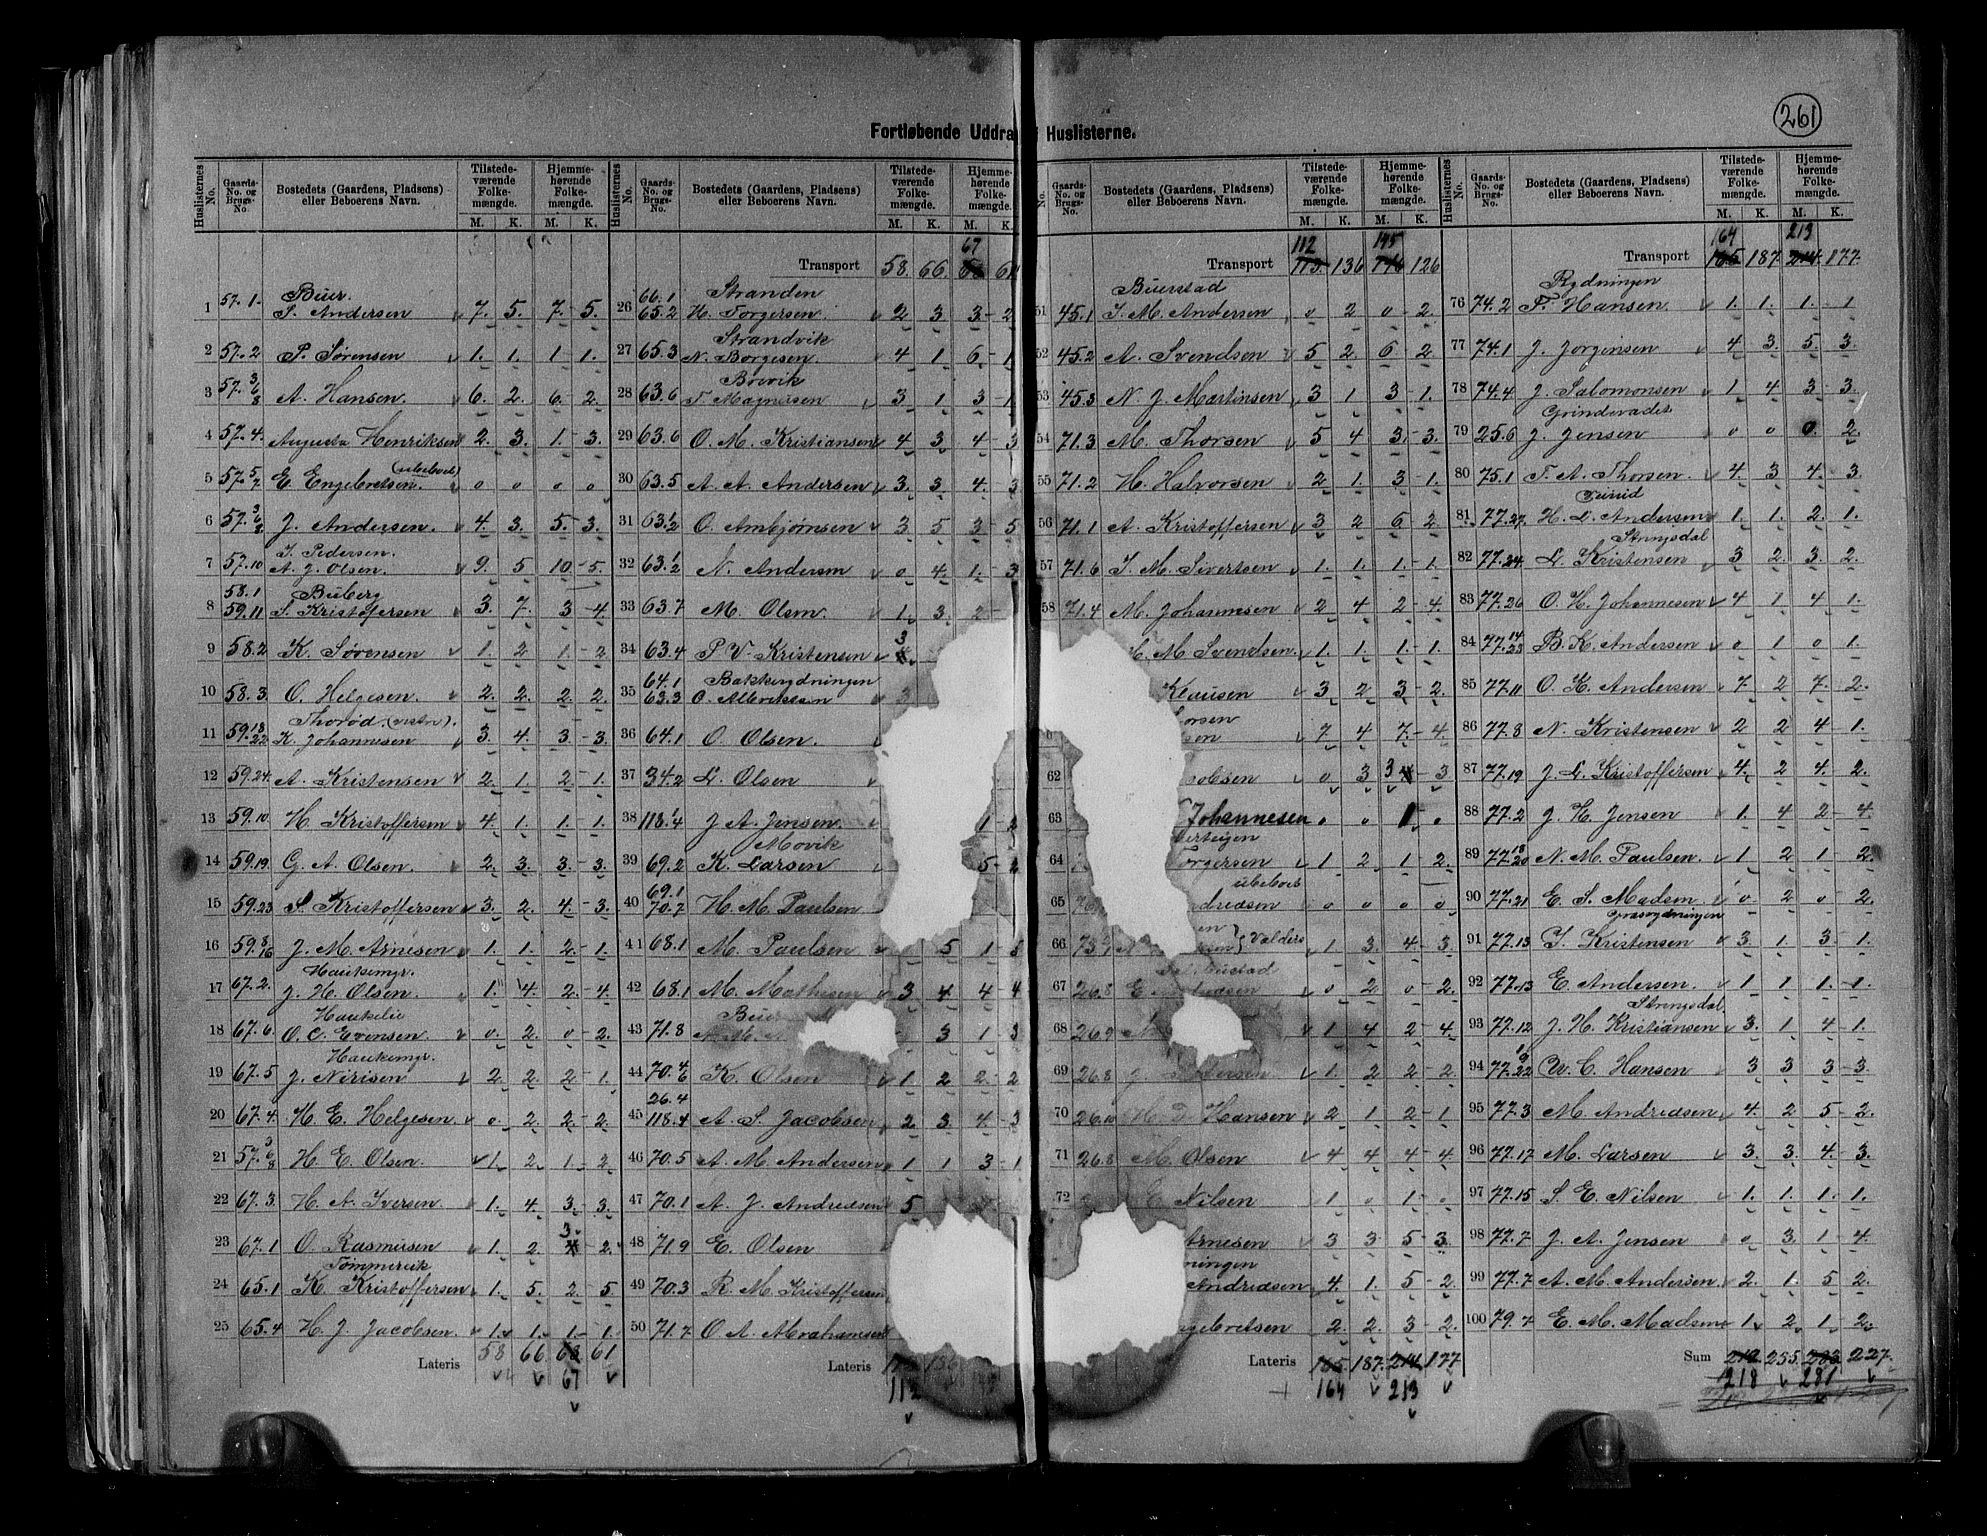 261
Fortløbende Uddra Huslisterne.
Huslisternes No. Gaards-No. og Brugs-No. Bostedets (Gaardens, Pladsens) eller Beboerens Navn. Tilstede-værende Folke-mængde. M. K. Hjemme-hørende Folke-mængde. M. K.
1 57.1. Buer.
S. Andersen 7. 5. 7. 5.
2 57.2 P. Sørensen 1. 1. 1 1.
3 57. 3/6/8 A. Hansen. 6. 2. 6. 2.
4 57.4. Augusta Henriksen 2. 3. 1. 3.
5 57. 5/7 E Engebretsen. (ubeboet) 0 0 0 0
6 57. 3/6/8 J. Andersen. 4. 3. 5. 3.
7 57.10 J. Pedersen.
A. J. Olsen. 9. 5 10. 5.
8 58.1 59.11 Buberg
S. Kristoffersen 3. 7. 3 4.
9 58.2 K. Sørensen 1. 2 1. 2
10 58.3. O. Helgesen. 2. 2. 2. 2.
11 59. 18/22 Thorød. (vestre).
K. Johannesen 3. 4. 3. 3.
12 59.24. A. Kristensen 2. 1. 2. 1.
13 59.10. H. Kristoffersen 4. 1. 1. 1.
14 59.19. G. A. Olsen. 2. 3. 3. 3.
15 59.23 S. Kristoffersen 3. 2. 4. 3.
16 J. M. Arnesen 1. 1. 2. 1.
17 67.2. Haukemyr.
J. H. Olsen. 1. 4. 2. 4.
18 67.6. Haukelie
O. C. Evensen 0. 2. 0 2.
19 67.5 Haukemyr.
J. Nirisen 2. 2. 2 1.
20 67.4. M. E. Helgesen. 0. 2. 2. 2.
21 57. 3/6/8 H. E. Olsen. 1. 2. 1. 2.
22 67.3. H. A. Iversen. 1. 4. 3. 3.
23 67.1 O. Rasmusen 1. 2. 3. 2.
24 65.1 Tommervik
K. Kristoffersen 1. 5. 2. 5
25 65.4 H. J. Jacobsen. 1. 1. 1. 1.
Lateris 58 66 68 61
67
67
Transport 58. 66.
26 66.1 65.2 Stranden
H. Torgersen. 2 3 3 2
27 65.3 Strandvik
N. Børgesen. 4 1 6 1
28 63.6 Brevik
T. Magnusen 3. 1 3 1
29 63.6 O. M. Kristiansen 4 3 4 3
30 63.5 A. A. Andersen 3. 3. 4. 3
31 63.½ O. Ambjørnsen 3 5 3 5
32 63.½ N. Andersen 0 4. 1. 3
33 63.7 M. Olsen. 1. 3. 2
34 63.4 P. V. Kristensen 3
35 64.1 63.3 Bakkerydningen
O. Albriktsen
36 64.1 O. Olsen.
37 34.2 L. Olsen
38 118.¼ J A. Jensen. 1 2
39 69.2 Movik
K. Larsen 5 2
40 69.1 70.7 H. M. Paulsen
41 68.1 M. Paulsen 5 1
42 68.1 M. Mathisen 3 4 4 4
43 71.8 Buer
N. M. 3 1 3
44 70. 4/6 K. Olsen 1 2 2 2
45 26.4 118.4 A. S. Jacobsen 2 3 4. 3
46 70.5 A. M. Andersen 1 1 3 1
47 70.1 A. J. Andresen 5
48 71.9 E. Olsen
49 70.3 R. M. Kristoffersen
50 71.7 O A. Abrahamsen
Lateris
112
112 145
Transport 113. 136 146 126
51 45.1 Buerstad
J. M. Andersen 0 2 0 2.
52 45.2 A. Svendsen 5 2. 6 2
53 45.3 N. J. Martinsen 3 1 3 1.
54 71.3 M. Thorsen 5 4 3. 3.
55 71.2 H. Halvorsen 2 1. 3 1.
56 71.1 A. Kristoffersen 3 2 6 2
57 71.6 J. M. Sivertsen 1. 1. 1. 1
58 71.4 M. Johannesen 2 4 2 4.
M. Svendsen. 1. 1. 1. 1.
Klausen 3 2 3 2.
7 4 7. 4.
62 0 3 3 3
63 Johannesen 0 0 1 0
64 1 2 1 2.
65 ubeboet 0 0 0 0
66 73.9 Valders 1 3 4 3.
67 26.8 0 2 0 2.
68 26.9 1 4 2 4.
69 26.8 1. 2 2 2
70 26.10 Hansen 2 1 2 1
71 26.8 M. Olsen 4 4 4 4
72 Nilsen 1 0 1 0
Arnesen 3 3. 5 3.
Andresen 4. 1. 5 2.
2. 2. 3 2.
Lateris 165. 187. 214 177
164 213
164 213
Transport 165 187 214. 177.
76 74.2 Rydningen
T. Hansen. 1. 1. 1. 1
77 74.1 J. Jørgensen 4 3. 5 3.
78 74.4 J. Salomonsen 1 4 3 3.
79 25.6 Grindevadet
J. Jensen 0 0 0. 2.
80 75.1 T. A. Thorsen. 4. 3 4. 3.
81 77.27. H. L. Andersen 1. 1. 2. 1.
82 77.24. Stringsdal
L. Kristensen 3 2. 3. 2.
83 77.26 O. H. Johannesen 4 1 4 1.
84 77. 14/23 B. K. Andersen 0 1 0 1.
85 77.11 O. K. Andersen 7. 2 7. 2.
86 77.8 N. Kristensen 2 2 4 1.
87 77.19 J. L. Kristoffersen 4. 2 4. 2.
88 77.2 J. H. Jensen 1. 4 2 4.
89 77. 18/20 N. M. Paulsen. 1. 2 1 2.
90 77.21 E. S. Madsen 0 2 0 2.
91 77.13 Græsrydningen
T. Kristensen 3. 1. 3 1.
92 77.13 E. Andersen. 1 1 1. 1.
93 77.12 Stringsdal
J. H. Kristiansen 3. 1 4 1.
94 W. C. Hansen 3 3 3 3
95 77.3 M. Andresen 4. 2 5 2.
96 77.17 M. Larsen 3. 3. 4. 3.
97 77.15 S. E. Nilsen 1. 1. 1. 1.
98 77.7 J. A. Jensen 0 3. 1 4.
99 77.7 A. M. Andersen. 2. 1. 5 2.
100 79.7 E. M. Madsen 1. 2. 1. 2.
Sum 219 255. 283 227.
218 281